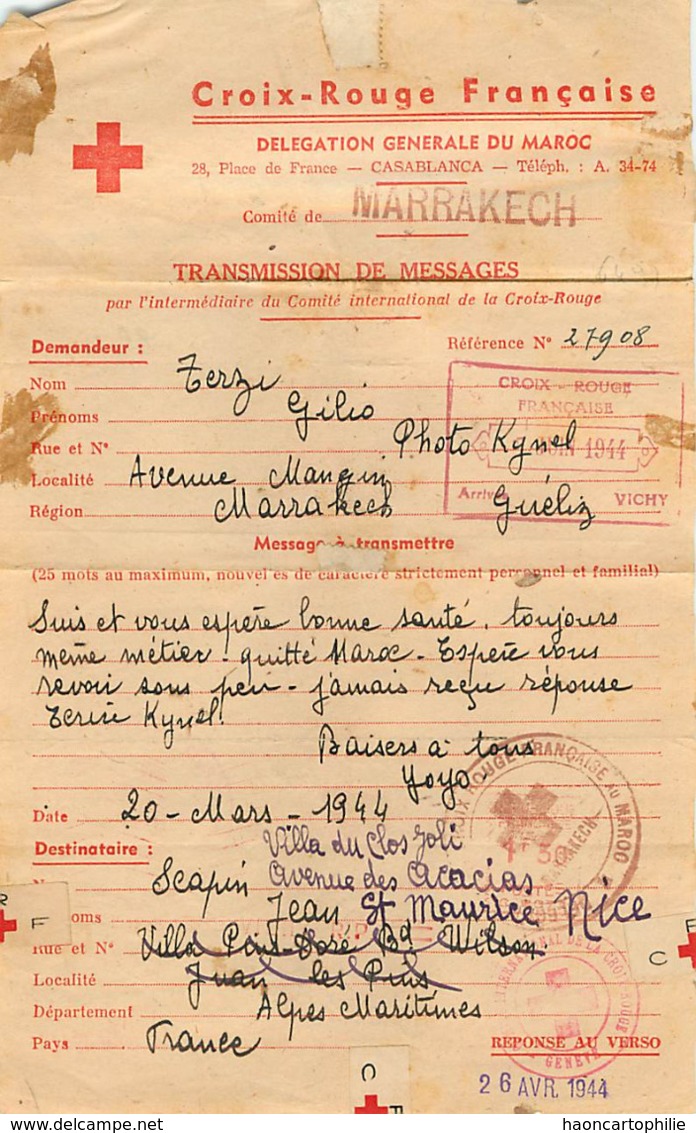 Croix-Rouge Française
DELEGATION GENERALE DU MAROC
28, Place de France — CASABLANCA — Téléph. : A. 34-74
Comité de MARRAKECH
TRANSMISSION DE MESSAGES
par l'intermédiaire du Comité international de la Croix-Rouge
Demandeur :
Référence N° 27908
Nom Terzi
Prénoms Gilio
CROIX - ROUGE
FRANÇAISE
1944
Arrivée VICHY
Rue et N° Photo Kynel
Localité Avenue Mangin
Région Marrakech Guéliz
Message à transmettre
(25 mots au maximum, nouvelles de caractère strictement personnel et familial)
Suis et vous espère bonne santé. toujours
même métier - quitté Maroc - Espère vous
revoir sous peu - jamais reçu réponse
Kynel.
Baisers à tous
Yoyo
Date 20 - Mars - 1944
CROIX ROUGE FRANÇAISE AU MAROC
MARRAKECH
Destinataire :
Villa du Clos Joli
Scapin Avenue des Acacias
Prénoms Jean St Maurice Nice
Rue et N° Villa Pins Doré Bd Wilson
Localité Juan les Pins
Département Alpes Maritimes
Pays France
REPONSE AU VERSO
DE LA CROIX ROUGE
GENÈVE
26 AVR. 1944
R F
C F
C F
haoncartophilie.com